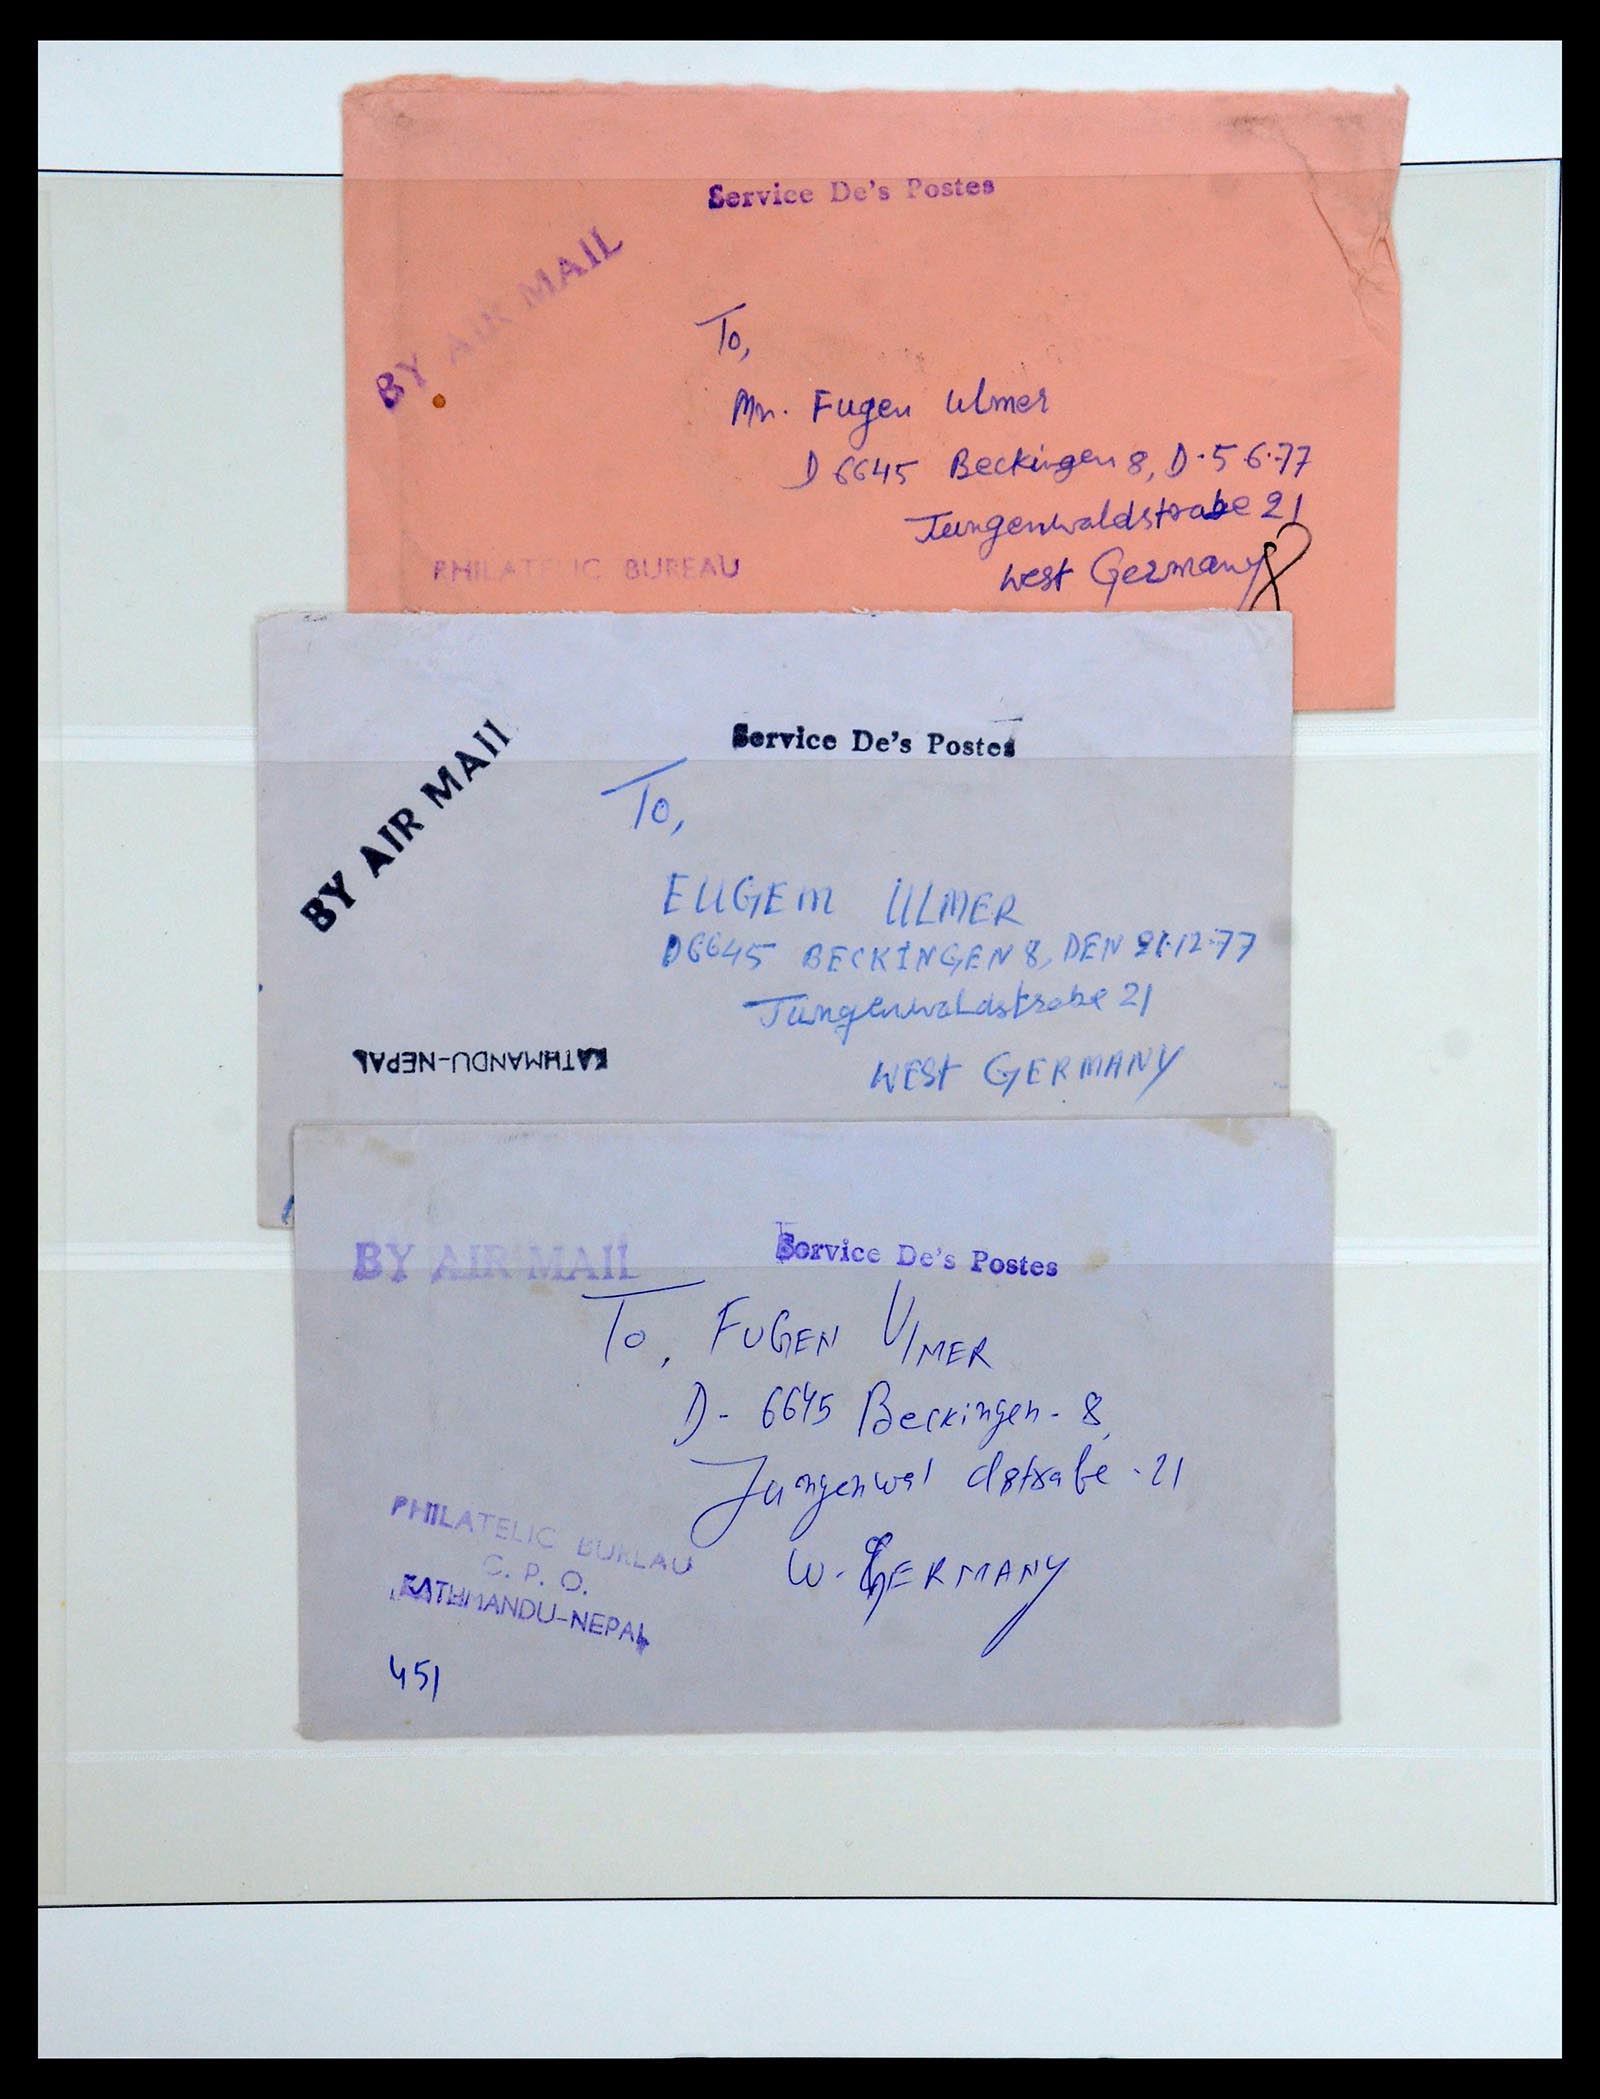 Service De's Postes
BY AIR MAIL
To,
Mr. Fugen Ulmer
D 6645 Beckingen 8, D.5 6.77
Jungenwaldstrabe 21
West Germany
PHILATELIC BUREAU
Service De's Postes
BY AIR MAIl
To,
EUGEM ULMER
D6645 BECKINGEN 8, DEN 21.12.77
Jungenwaldstrabe 21
WEST GERMANY
KATHMANDU-NEPAL
BY AIR MAIL
Service De's Postes
To, FUGEN UlMER
D- 6645 Beckingen- 8,
Jungenwal dstrabe - 21
W. GERMANY
PHILATELIC BUREAU
G. P. O.
KATHMANDU-NEPAL
451